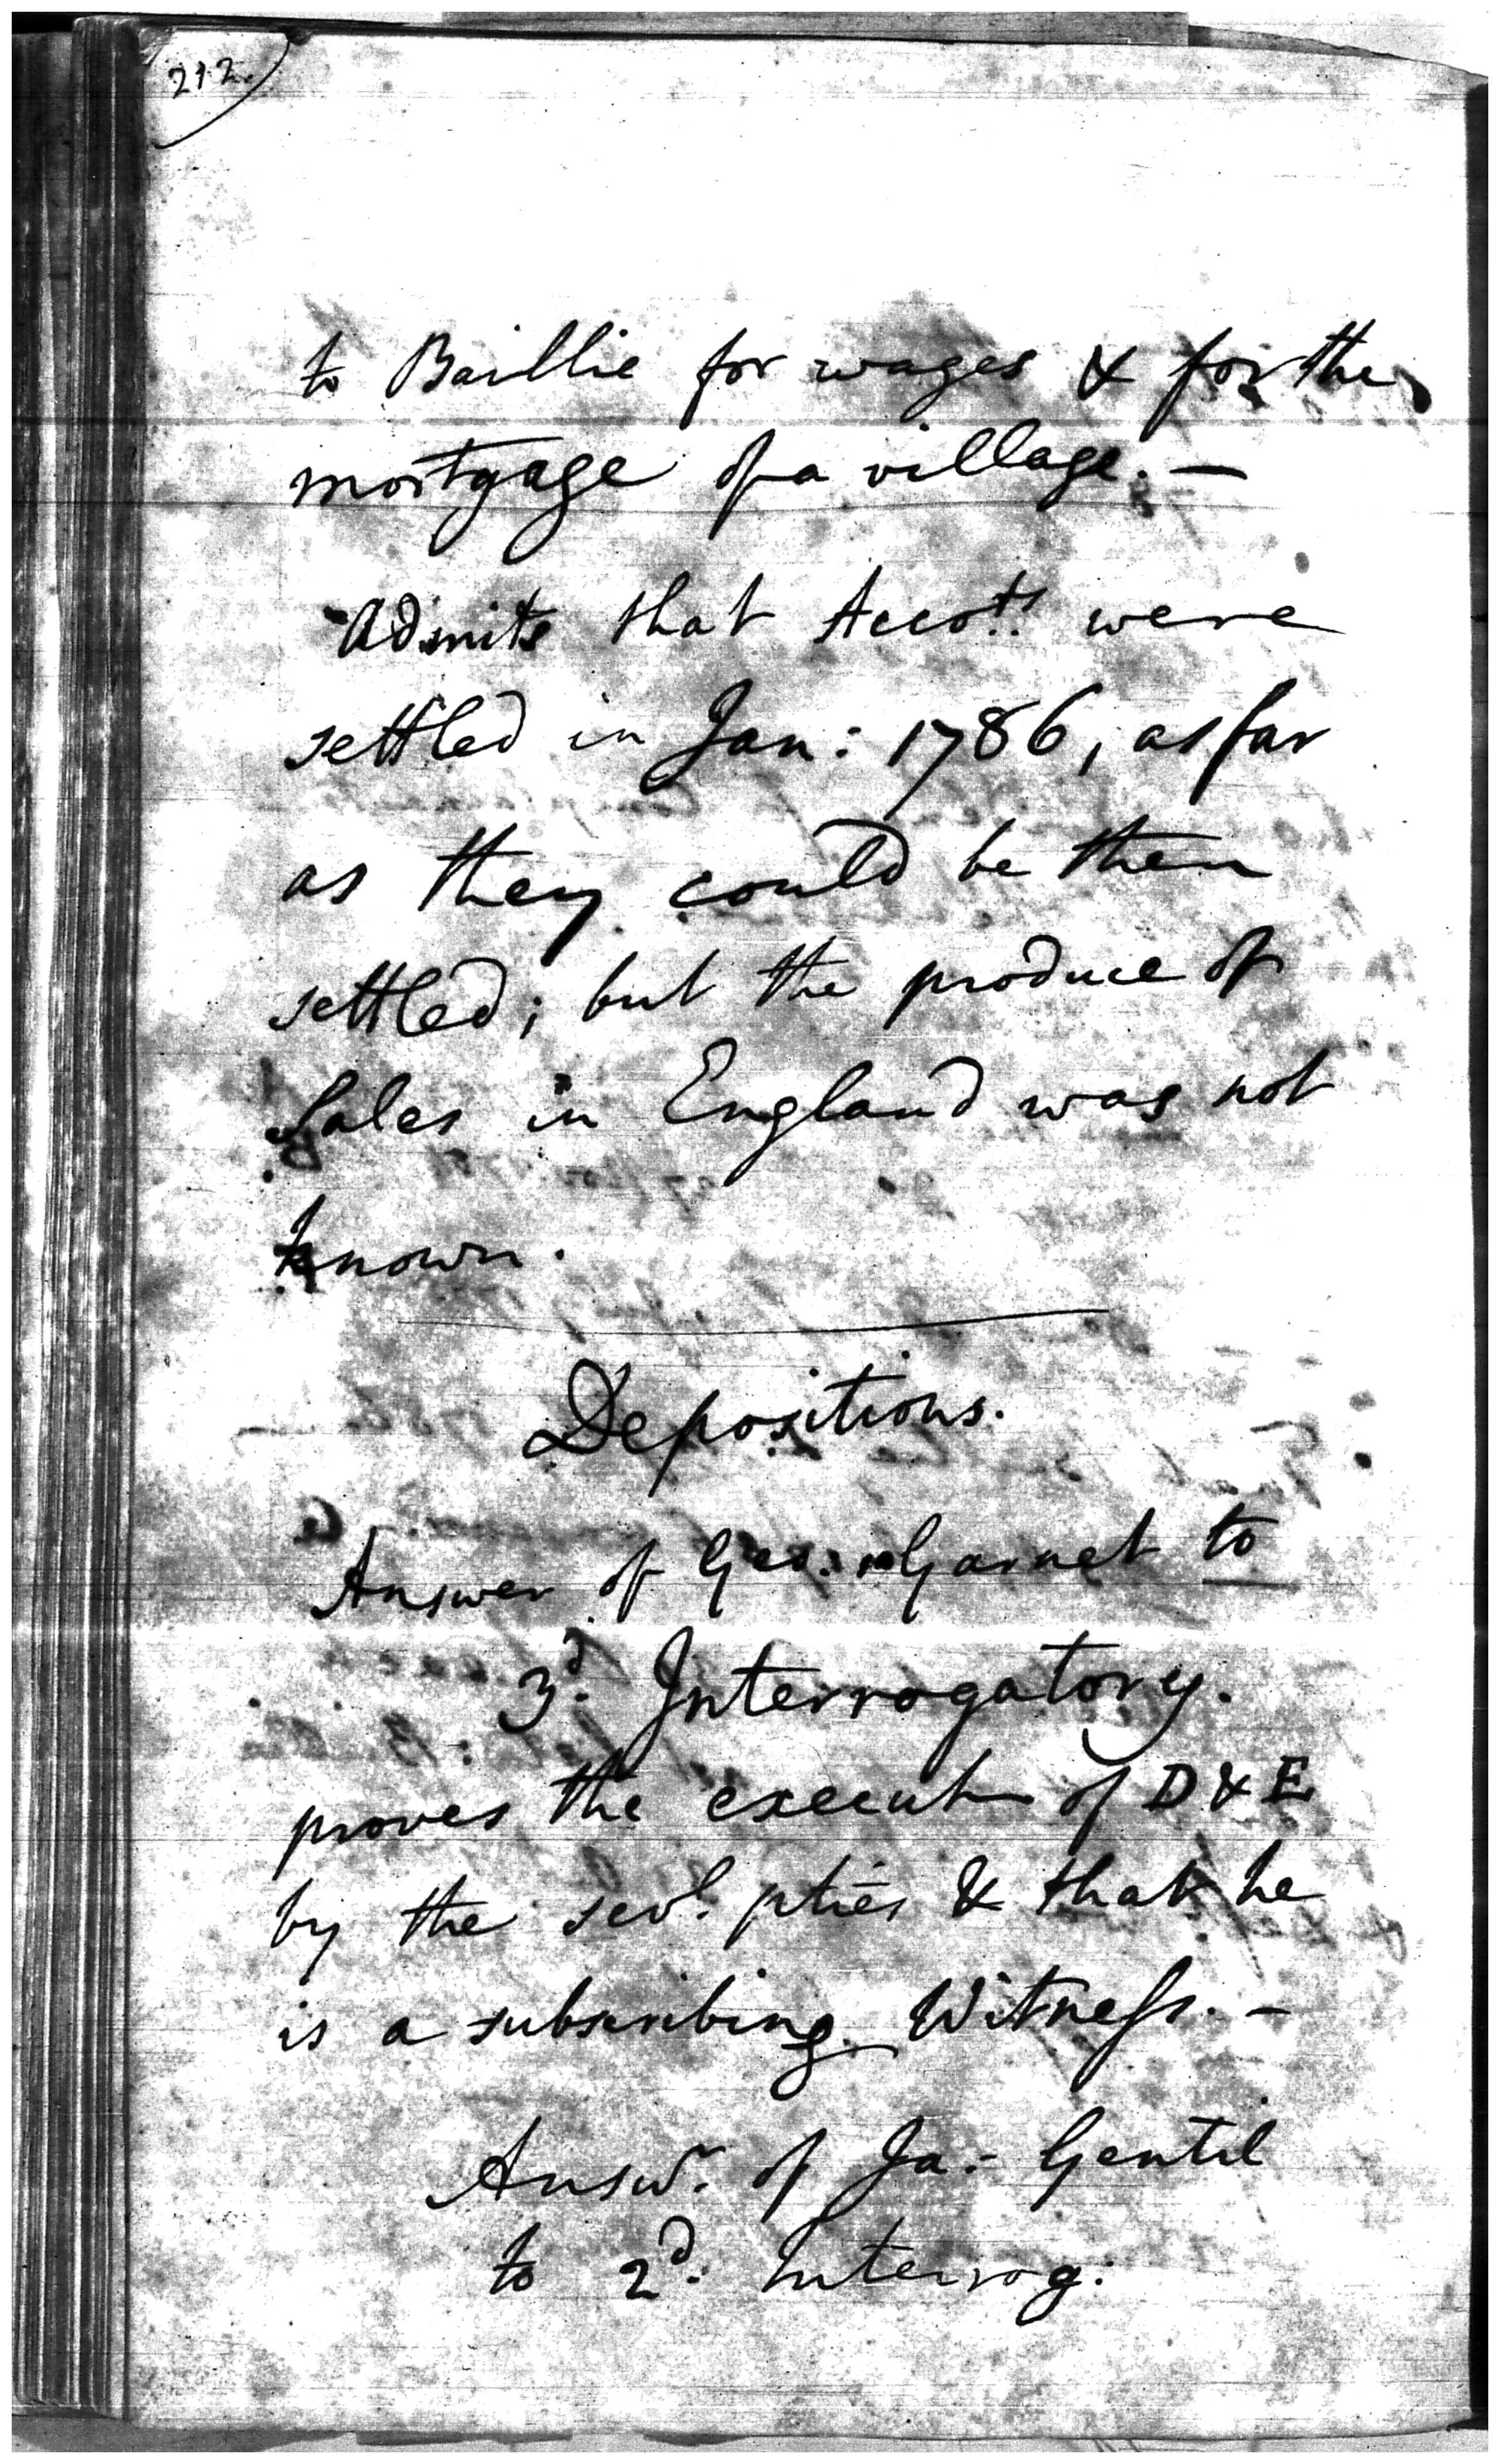 212
to Baillie for wages & for the
mortgage of a village. —
Admits that Accots. were
settled in Jan: 1786, as far
as they could be then
settled; but the produce of
Sales in England was not
known.
Depositions.
Answer of Geo. Garnet to
3d. Interrogatory.
proves the executn of D & E
by the sevl. pties & that he
is a subscribing Witness. —
Answr. of Ja: Gentil
to 2d. Interrog: